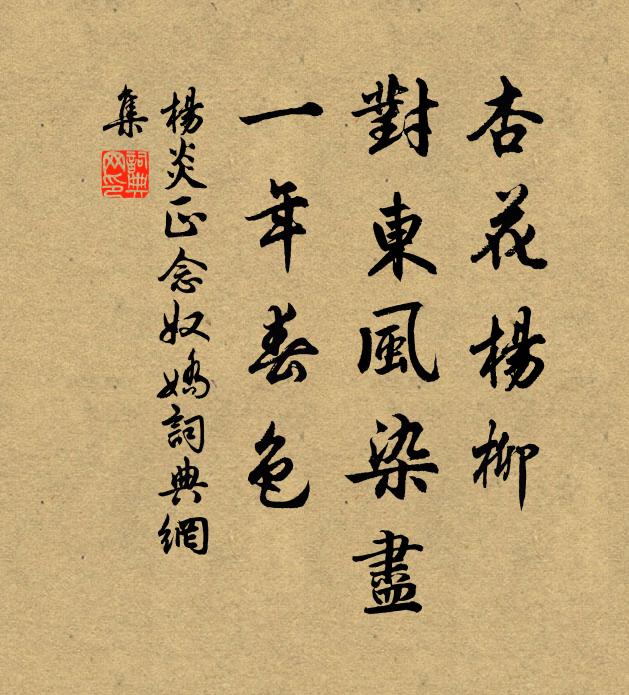 杏花楊柳
對東風染盡
一年春色
楊炎正念奴嬌詞典網
集
詞典
网印